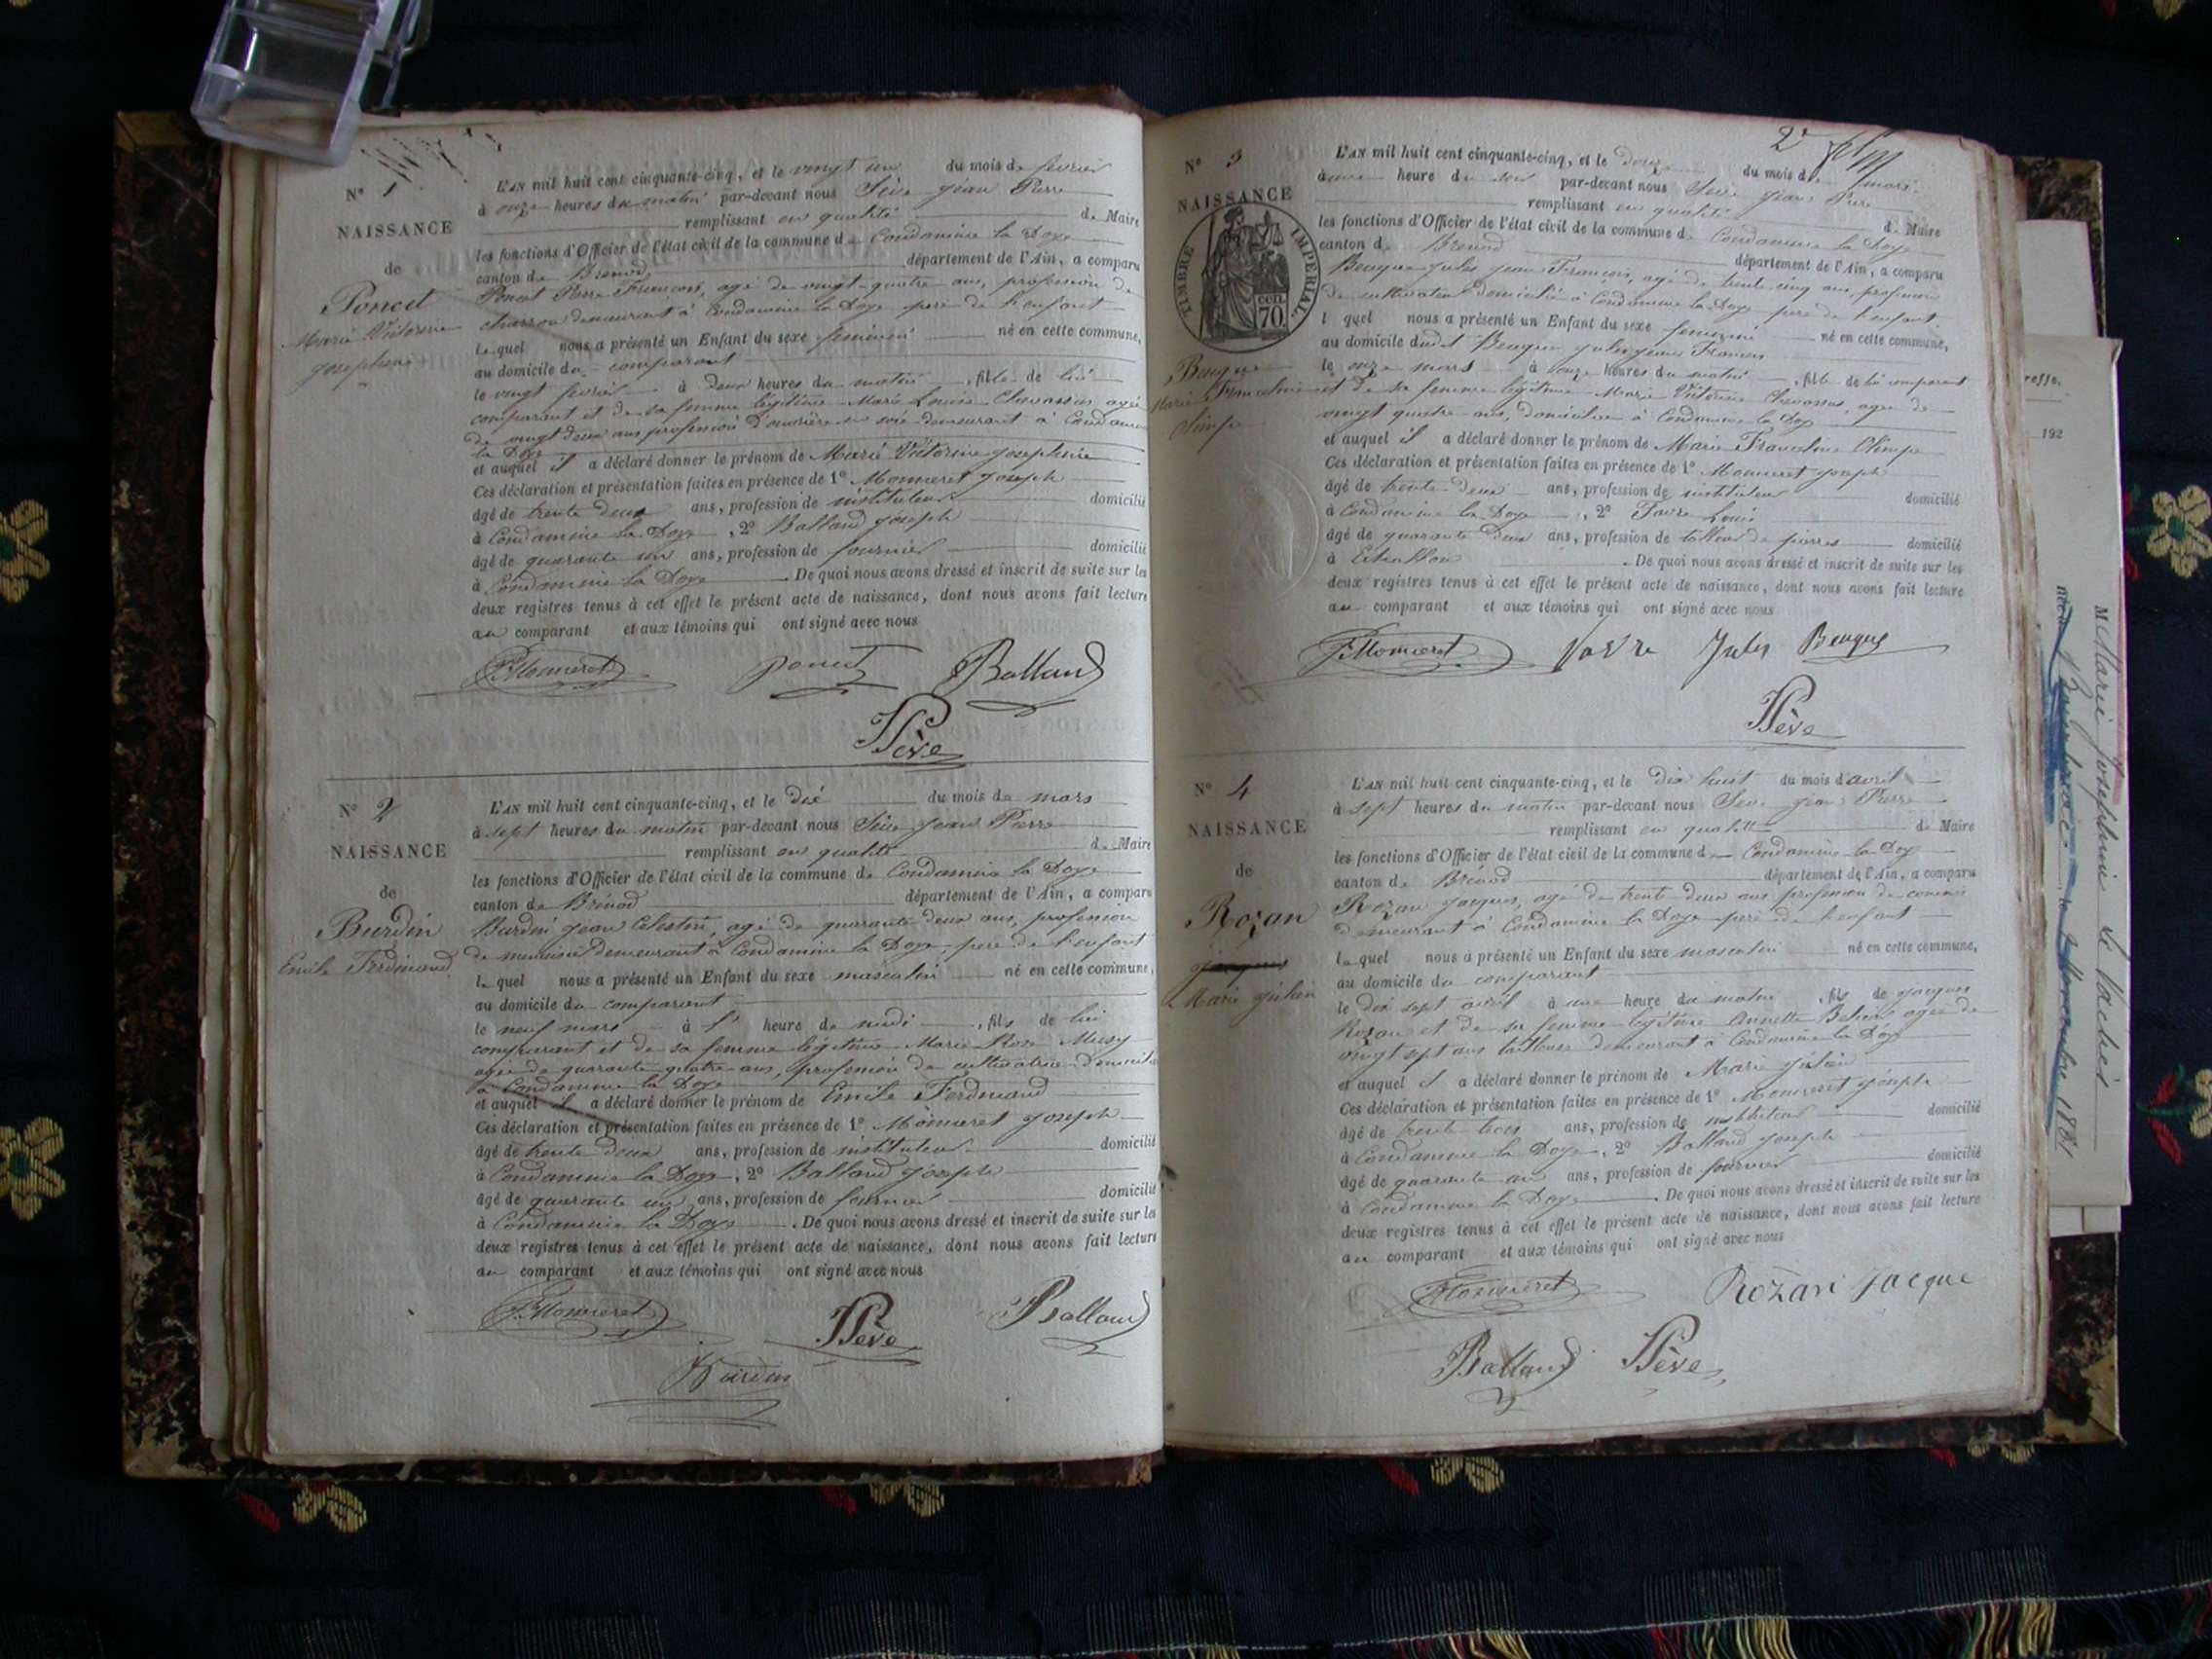 N° 1
NAISSANCE
de
Poncet
Marie Victorine
Josephine
L'AN mil huit cent cinquante-cinq, et le vingt un du mois de fevrier
à onze heures du matin par-devant nous Sève Jean Pierre
remplissant en qualité de Maire
les fonctions d'Officier de l'état civil de la commune de Condamine la Doye
canton de Brenod département de l'Ain, a comparu
Poncet Pierre François, agé de vingt-quatre ans, profession de
charron demeurant à Condamine la Doye pere de l'enfant
lequel nous a présenté un Enfant du sexe feminin né en cette commune,
au domicile du comparant
le vingt fevrier à deux heures du matin, fille de lui
comparant et de sa femme légitime Marie Louise Chevassus agée
de vingt deux ans profession d'ouvrière en soie demeurant à Condamine
la Doye
et auquel il a déclaré donner le prénom de Marie Victorine Josephine
Ces déclaration et présentation faites en présence de 1° Monneret Joseph
âgé de trente deux ans, profession de instituteur domicilié
à Condamine la Doye, 2° Balland Joseph
âgé de quarante un ans, profession de fournier domicilié
à Condamine la Doye. De quoi nous avons dressé et inscrit de suite sur les
deux registres tenus à cet effet le présent acte de naissance, dont nous avons fait lecture
au comparant et aux témoins qui ont signé avec nous
Monneret Poncet Balland
Sève
N° 2
NAISSANCE
de
Burdin
Emile Ferdinand
L'AN mil huit cent cinquante-cinq, et le dix du mois de mars
à sept heures du matin par-devant nous Sève Jean Pierre
remplissant en qualité de Maire
les fonctions d'Officier de l'état civil de la commune de Condamine la Doye
canton de Brenod département de l'Ain, a comparu
Burdin Jean Celestin, agé de quarante deux ans, profession
de menuisier demeurant à Condamine la Doye, pere de l'enfant
lequel nous a présenté un Enfant du sexe masculin né en cette commune,
au domicile du comparant
le neuf mars à l' heure de midi, fils de lui
comparant et de sa femme légitime Marie Rose Musy
agée de quarante quatre ans, profession de cultivatrice domiciliée
à Condamine la Doye
et auquel il a déclaré donner le prénom de Emile Ferdinand
Ces déclaration et présentation faites en présence de 1° Monneret Joseph
âgé de trente deux ans, profession de instituteur domicilié
à Condamine la Doye, 2° Balland Joseph
âgé de quarante un ans, profession de fournier domicilié
à Condamine la Doye. De quoi nous avons dressé et inscrit de suite sur les
deux registres tenus à cet effet le présent acte de naissance, dont nous avons fait lecture
au comparant et aux témoins qui ont signé avec nous
Monneret Sève Balland
Burdin
2e
N° 3
NAISSANCE
TIMBRE IMPERIAL
cen.
70.
Beuque
Marie Franceline
Olimpe
L'AN mil huit cent cinquante-cinq, et le douze du mois de mars
à une heure du soir par-devant nous Sève Jean Pierre
remplissant en qualité de Maire
les fonctions d'Officier de l'état civil de la commune de Condamine la Doye
canton de Brenod département de l'Ain, a comparu
Beuque Jules Jean François, agé de trente cinq ans, profession
de cultivateur domicilié à Condamine la Doye pere de l'enfant
lequel nous a présenté un Enfant du sexe feminin né en cette commune,
au domicile dudit Beuque Jules Jean François
le onze mars à onze heures du matin, fille de lui comparant
et de sa femme légitime Marie Victorine Chevassus, agée de
vingt quatre ans, domiciliée à Condamine la Doye
et auquel il a déclaré donner le prénom de Marie Franceline Olimpe
Ces déclaration et présentation faites en présence de 1° Monneret Joseph
âgé de trente-deux ans, profession de instituteur domicilié
à Condamine la Doye, 2° Favre Louis
âgé de quarante deux ans, profession de tailleur de pierres domicilié
à Echallon. De quoi nous avons dressé et inscrit de suite sur les
deux registres tenus à cet effet le présent acte de naissance, dont nous avons fait lecture
au comparant et aux témoins qui ont signé avec nous
Monneret Favre Jules Beuque
Sève
N° 4
NAISSANCE
de
Rozan
Jacques
Marie Julien
L'AN mil huit cent cinquante-cinq, et le dix huit du mois d'avril
à sept heures du matin par-devant nous Sève Jean Pierre
remplissant en qualité de Maire
les fonctions d'Officier de l'état civil de la commune de Condamine la Doye
canton de Brénod département de l'Ain, a comparu
Rozan Jacques, agé de trente deux ans profession de
demeurant à Condamine la Doye pere de l'enfant
lequel nous a présenté un Enfant du sexe masculin né en cette commune,
au domicile du comparant
le dix sept avril à une heure du matin, fils de Jacques
Rozan et de sa femme légitime Annette agée de
vingt sept ans tailleuse demeurant à Condamine la Doye
et auquel il a déclaré donner le prénom de Marie Julien
Ces déclaration et présentation faites en présence de 1° Monneret Joseph
âgé de trente trois ans, profession de instituteur domicilié
à Condamine la Doye, 2° Balland Joseph
âgé de quarante un ans, profession de fournier domicilié
à Condamine la Doye. De quoi nous avons dressé et inscrit de suite sur les
deux registres tenus à cet effet le présent acte de naissance, dont nous avons fait lecture
au comparant et aux témoins qui ont signé avec nous
Monneret Rozan Jacque
Balland Sève
192
Marie Joséphine